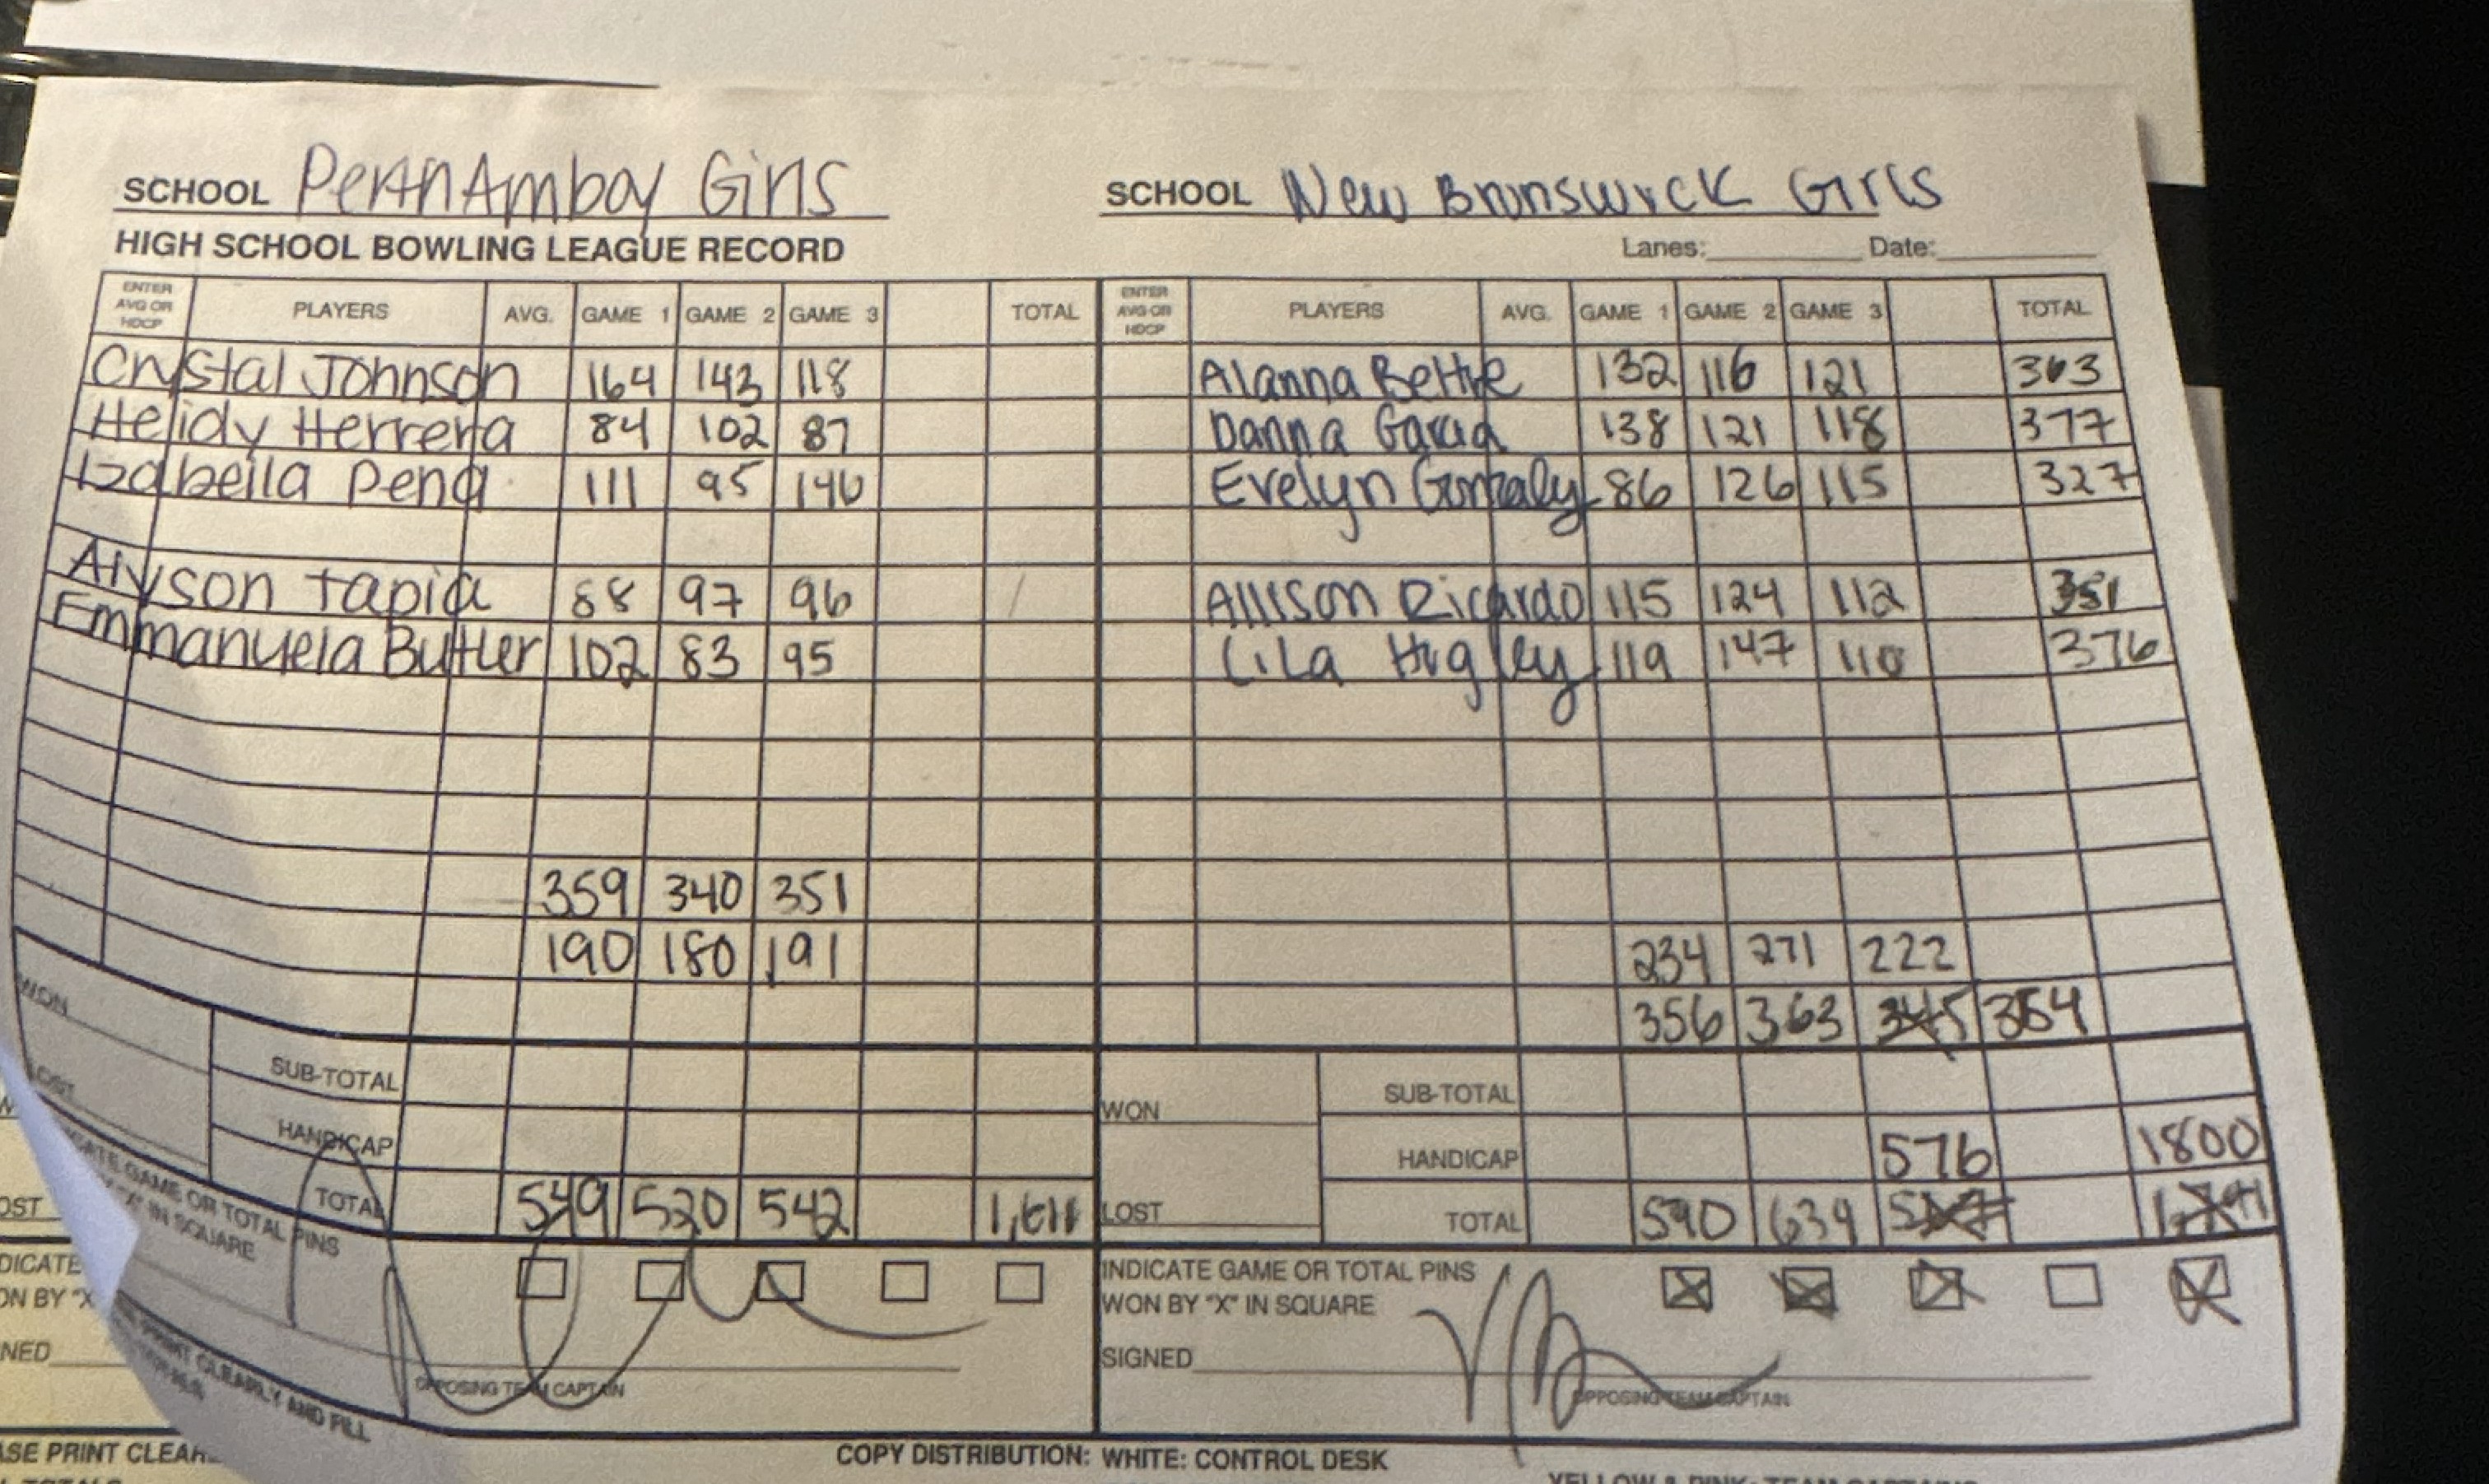 SCHOOL Perth Amboy Girls
HIGH SCHOOL BOWLING LEAGUE RECORD
ENTER AVG OR HDCP PLAYERS AVG. GAME 1 GAME 2 GAME 3 TOTAL
Crystal Johnson 164 143 118
Heidy Herrera 84 102 87
Izabella Pena 111 95 146
Alyson Tapia 88 97 96
Emmanuela Butler 102 83 95
359 340 351
190 180 191
WON
LOST
SUB-TOTAL
HANDICAP
TOTAL 549 520 542 1,611
INDICATE GAME OR TOTAL PINS
WON BY "X" IN SQUARE
OPPOSING TEAM CAPTAIN
PRINT CLEARLY AND FILL
SCHOOL New Brunswick Girls
Lanes: Date:
ENTER AVG OR HDCP PLAYERS AVG. GAME 1 GAME 2 GAME 3 TOTAL
Alanna 132 116 121 363
Danna Garcia 138 121 118 377
Evelyn 86 126 115 327
Allison Ricardo 115 124 112 351
Lila Higley 119 147 110 376
234 271 222
356 363 345 354
WON
LOST
SUB-TOTAL
HANDICAP 576 1800
TOTAL 590 634
INDICATE GAME OR TOTAL PINS
WON BY "X" IN SQUARE
SIGNED
OPPOSING TEAM CAPTAIN
OST
DICATE
ON BY "X"
NED
ASE PRINT CLEAR
COPY DISTRIBUTION: WHITE: CONTROL DESK
YELLOW & PINK: TEAM CAPTAINS